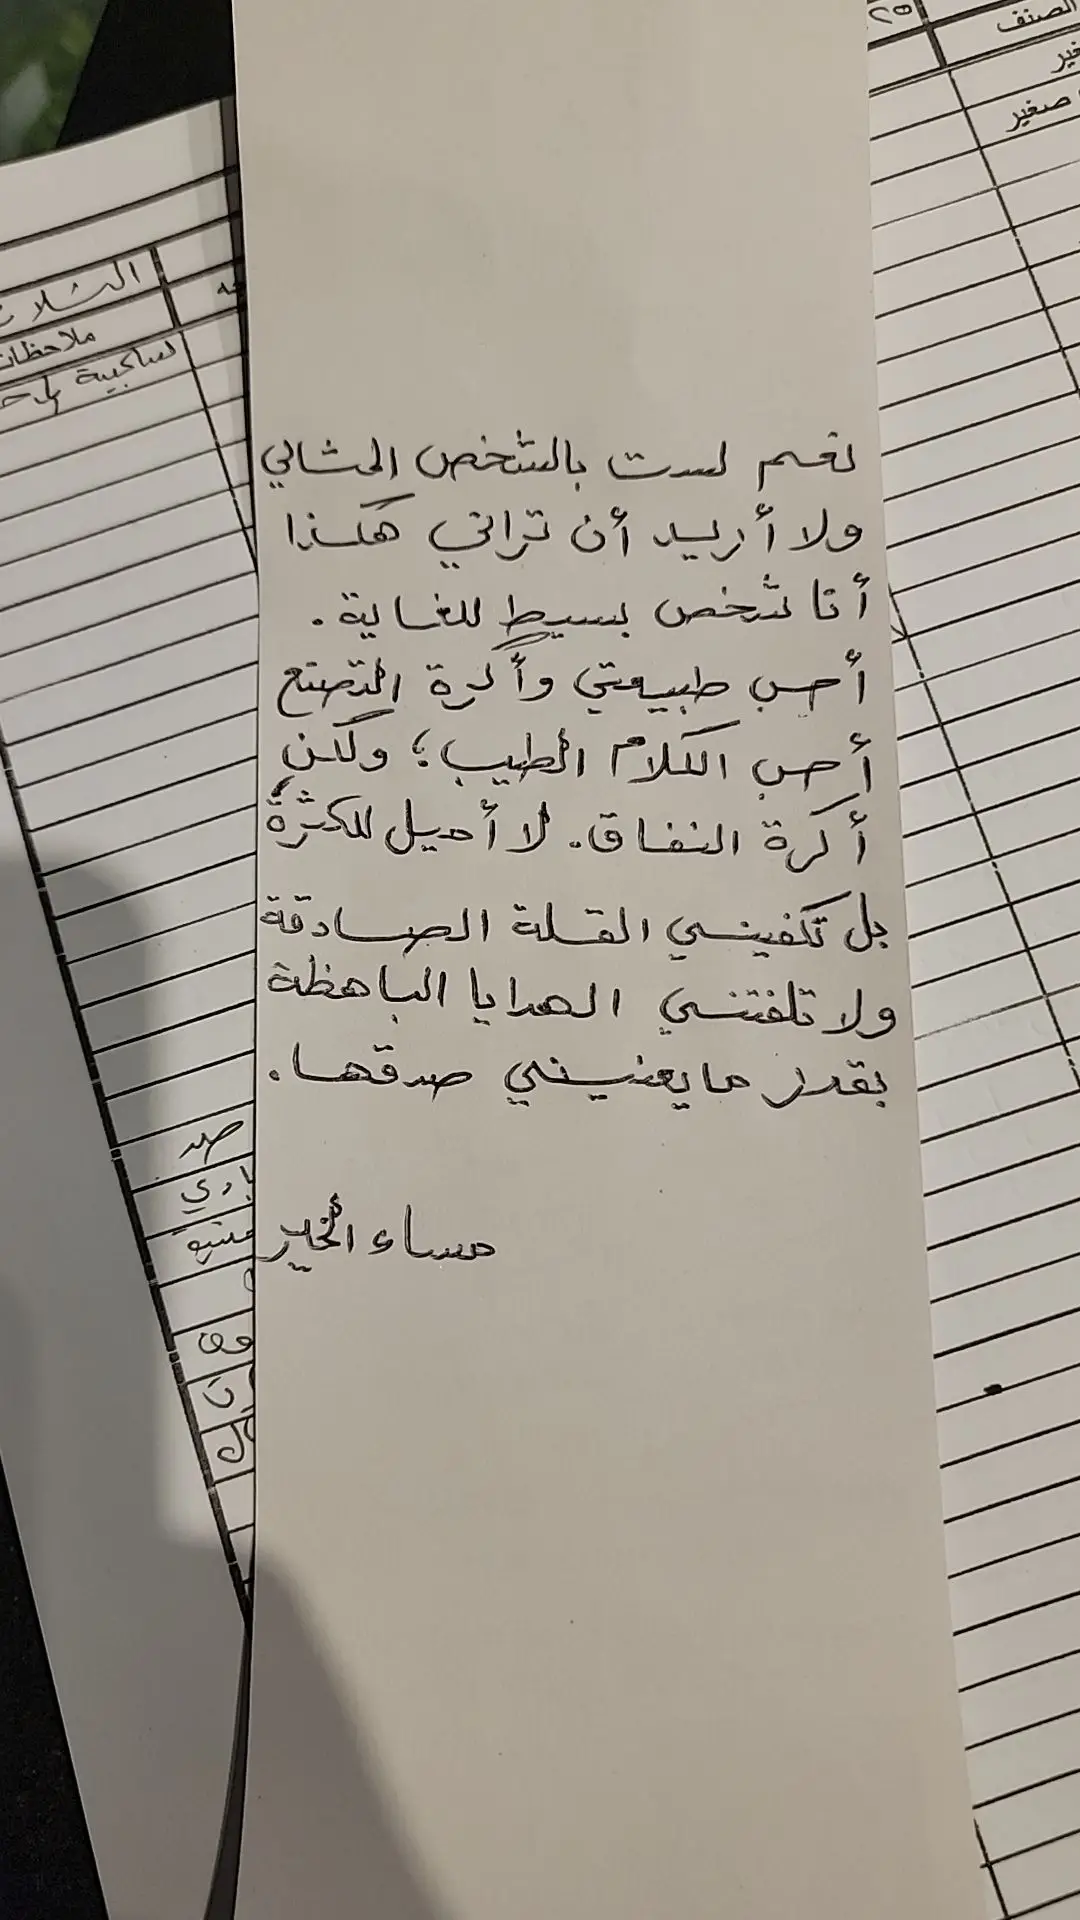 نعم لست بالشخص المثالي
ولا أريد أن تراني هكذا
أنا شخص بسيط للغاية.
أحب طبيعتي وأكرة التصنع
أحب الكلام الطيب؛ ولكن
أكرة النفاق. لا أميل للكثرة
بل تكفيني القلة الصادقة
ولا تلفتني الهدايا الباهظة
بقدر ما يعنيني صدقها.
مساء الخير
الصنف
صغير
ملاحظات